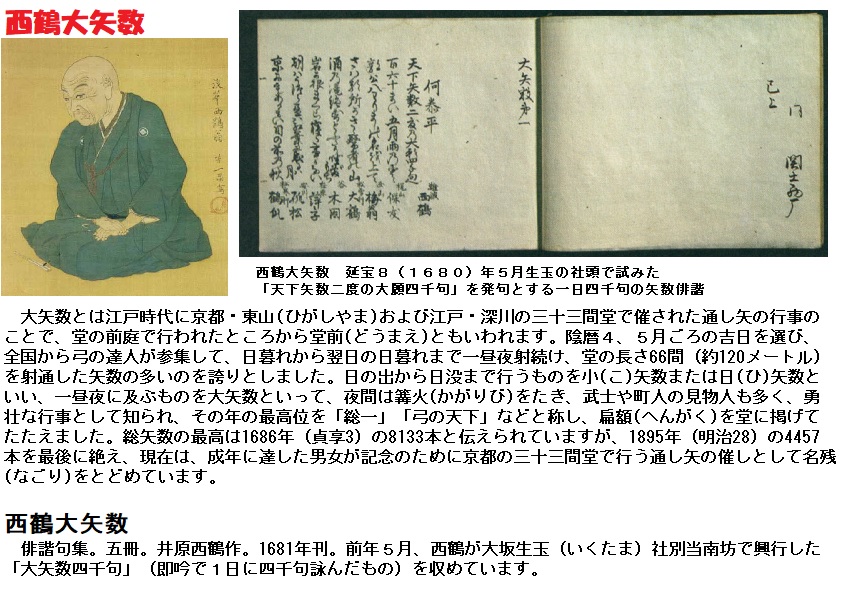 西鶴大矢数
大矢数第一
何恭平
天下矢数二度の大願四千句也
西鶴
保友
梅翁
大鶴
木因
西鶴大矢数 延宝８（１６８０）年５月生玉の社頭で試みた
「天下矢数二度の大願四千句」を発句とする一日四千句の矢数俳諧
大矢数とは江戸時代に京都・東山(ひがしやま)および江戸・深川の三十三間堂で催された通し矢の行事の
ことで、堂の前庭で行われたところから堂前(どうまえ)ともいわれます。陰暦４、５月ごろの吉日を選び、
全国から弓の達人が参集して、日暮れから翌日の日暮れまで一昼夜射続け、堂の長さ66間（約120メートル）
を射通した矢数の多いのを誇りとしました。日の出から日没まで行うものを小(こ)矢数または日(ひ)矢数と
いい、一昼夜に及ぶものを大矢数といって、夜間は篝火(かがりび)をたき、武士や町人の見物人も多く、勇
壮な行事として知られ、その年の最高位を「総一」「弓の天下」などと称し、扁額(へんがく)を堂に掲げて
たたえました。総矢数の最高は1686年（貞享3）の8133本と伝えられていますが、1895年（明治28）の4457
本を最後に絶え、現在は、成年に達した男女が記念のために京都の三十三間堂で行う通し矢の催しとして名残
(なごり)をとどめています。
西鶴大矢数
俳諧句集。五冊。井原西鶴作。1681年刊。前年５月、西鶴が大坂生玉（いくたま）社別当南坊で興行した
「大矢数四千句」（即吟で１日に四千句詠んだもの）を収めています。